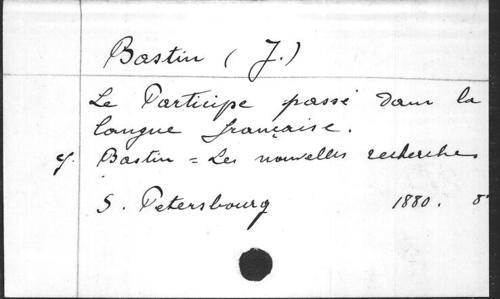 Bastin (J.)
Le Participe passé dans la
langue française.
cf. Bastin = Les nouvelles recherches
S. Petersbourg 1880. 8°